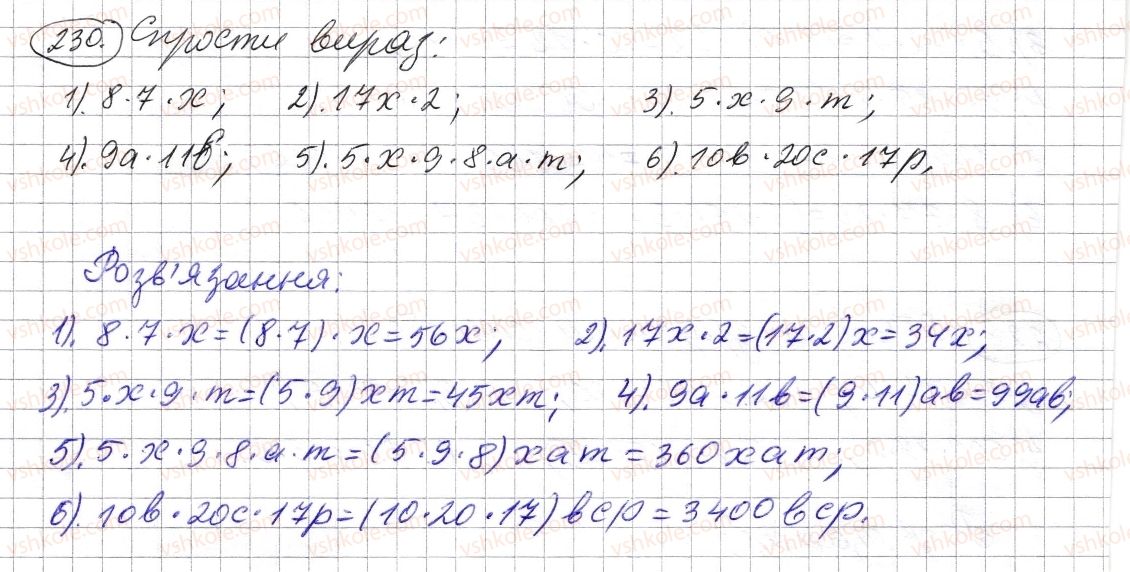 230. Спрости вираз:
1). 8·7·x; 2). 17x·2; 3). 5·x·9·m;
4). 9a·11b; 5). 5·x·9·8·a·m; 6). 10b·20c·17p.
Розв'язання:
1). 8·7·x=(8·7)·x=56x; 2). 17x·2=(17·2)x=34x;
3). 5·x·9·m=(5·9)xm=45xm; 4). 9a·11b=(9·11)ab=99ab;
5). 5·x·9·8·a·m=(5·9·8)xam=360xam;
6). 10b·20c·17p=(10·20·17)bcp=3400bcp.